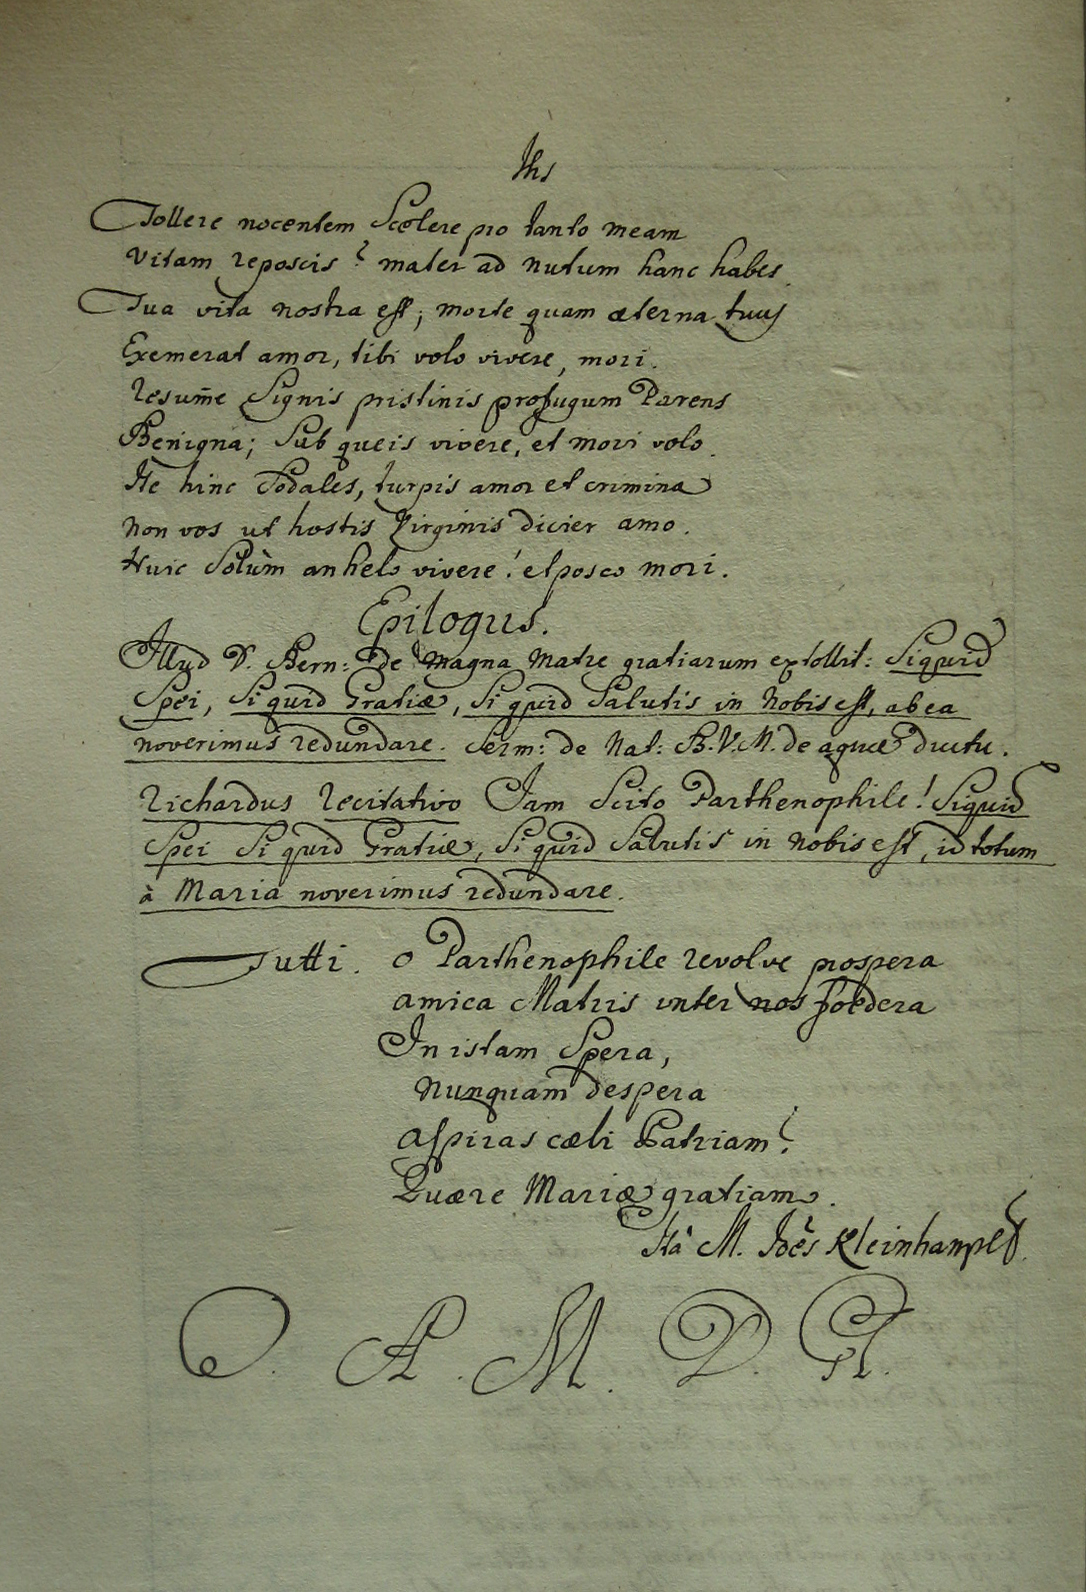 Ihs
Tollere nocentem Scelere pro tanto meam
Vitam reposcis? mater ad nutum hanc habes.
Tua vita nostra est; morte quam æterna tuus
Exemerat amor, tibi volo vivere, mori.
Resum̄e Signis pristinis profugum Parens
Benigna; Sub queis vivere, et mori volo.
Ite hinc Sodales, turpis amor et crimina
Non vos ut hostis Virginis dicier amo.
Huic Solùm anhelo vivere! et posco mori.
Epilogus.
Illud D. Bern: de magna Matre gratiarum extollit: Si quid
Spei, Si quid Gratiæ, Si quid Salutis in Nobis est, ab ea
noverimus redundare. Serm: de Nat: B.V.M. de aquæ ductu.
Richardus Recitativo Jam Scito Parthenophile! Siquid
Spei Si quid Gratiæ, Si quid Salutis in nobis est, id totum
à Maria noverimus redundare.
Tutti. O Parthenophile revolve prospera
amica Matris inter nos foedera
In istam Spera,
Nunquam despera
Aspiras cæli Patriam?
Quære Mariæ gratiam.
Ita M. Joēs Kleinhampl
O. A. M. D. G.